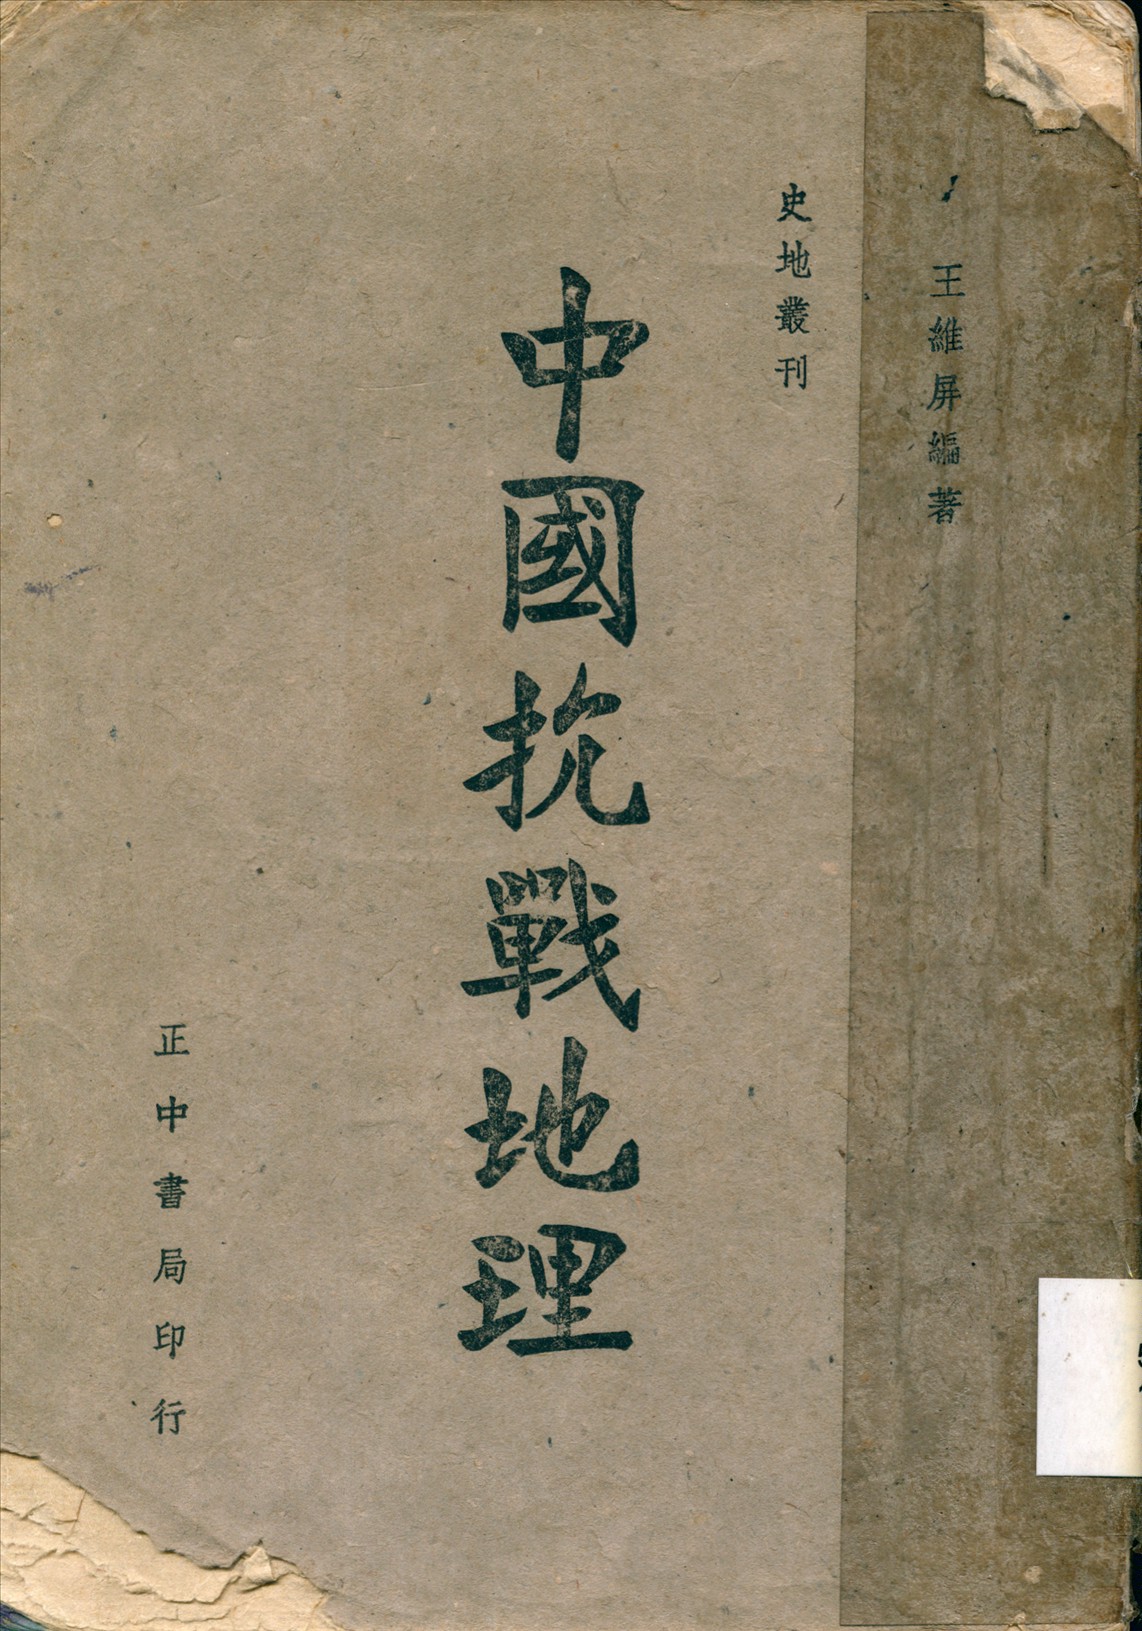 王維屏編著
史地叢刊
中國抗戰地理
正中書局印行